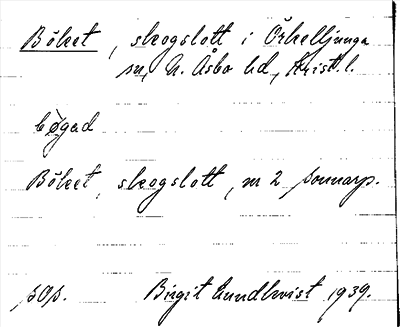 Böket, skogslott i Örkelljunga
sn, N. Åsbo hd, Krist. l.
bøgad
Böket, skogslott, nr 2 Sonnarp.
pOp. Birgit Lundkvist 1939.